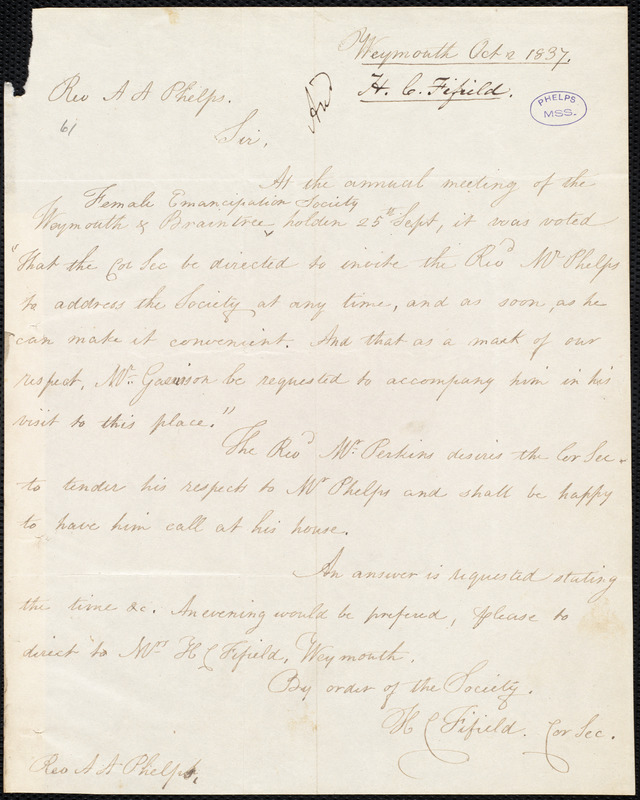 Weymouth Oct 2 1837.
Rev A A Phelps.
H. C. Fifield.
Ans
PHELPS
MSS.
61
Sir,
At the annual meeting of the
Female Emancipation Society
Weymouth & Braintree ‸ holden 25th Sept, it was voted
"That the Cor Sec be directed to invite the Revd Mr Phelps
to address the Society at any time, and as soon, as he
can make it convenient. And that as a mark of our
respect, Mr. Garrison be requested to accompany him in his
visit to this place."
The Revd Mr. Perkins desires the Cor Sec.
to tender his respects to Mr Phelps and shall be happy
to have him call at his house.
An answer is requested stating
the time &c. An evening would be prefered, please to
direct to Mrs H C Fifield, Weymouth.
By order of the Society.
H C Fifield. Cor Sec.
Rev A A Phelps,